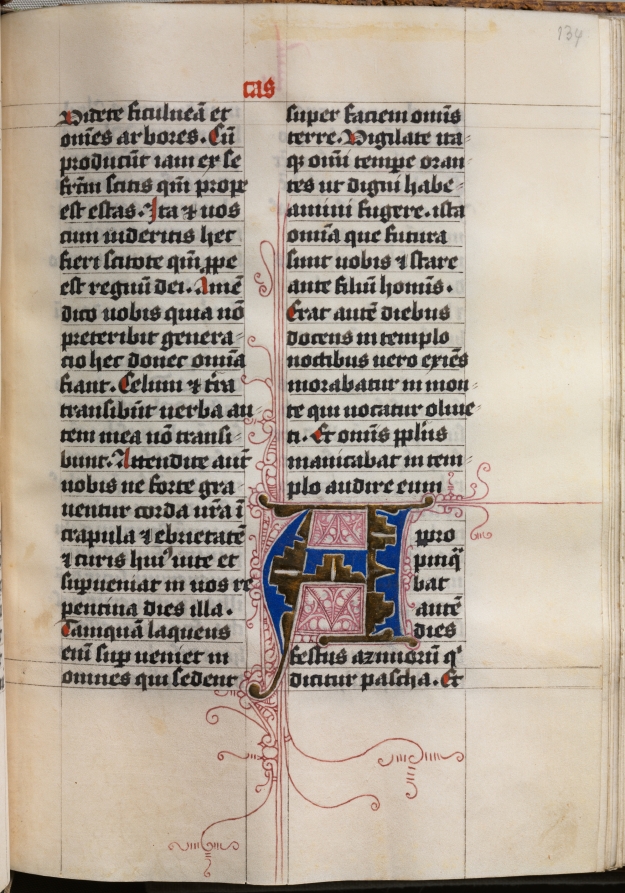 134
cas
Videte ficulneā et
om̄es arbores. Cū
producūt iam ex se
fr̄m scitis qm̄ prope
est estas. Ita ⁊ uos
cum uideritis hec
fieri scitote qm̄ ꝓpe
est regnū dei. Amē
dico uobis quia nō
preteribit genera⸗
cio hec donec om̄ia
fiant. Celum ⁊ t̄ra
transibūt uerba au⸗
tem mea nō transi⸗
bunt. Attendite aut̄
uobis ne forte gra⸗
uentur corda ur̄a ī
crapula ⁊ ebrietatē
⁊ curis huiꝰ uite et
supueniat in uos re
pentina dies illa.
Tamquā laqueus
eni᷒ sup ueniet in
omnes qui sedent
super faciem om̄is
terre. Vigilate ita⸗
qꝫ om̄i tempe oran⸗
tes ut digni habe⸗
amini fugere. ista
om̄ia que futura
sunt uobis ⁊ stare
ante filiū homīs.
Erat autē diebus
docens in templo
noctibus uero exiēs
morabatur in mon⸗
te qui uocatur oliue⸗
ti. Et om̄is pplūs
manicabat in tem⸗
plo audire eum
Appro
pinq̄
bat
autē
dies
festus azimorū qͥ
dicitur pascha. Et